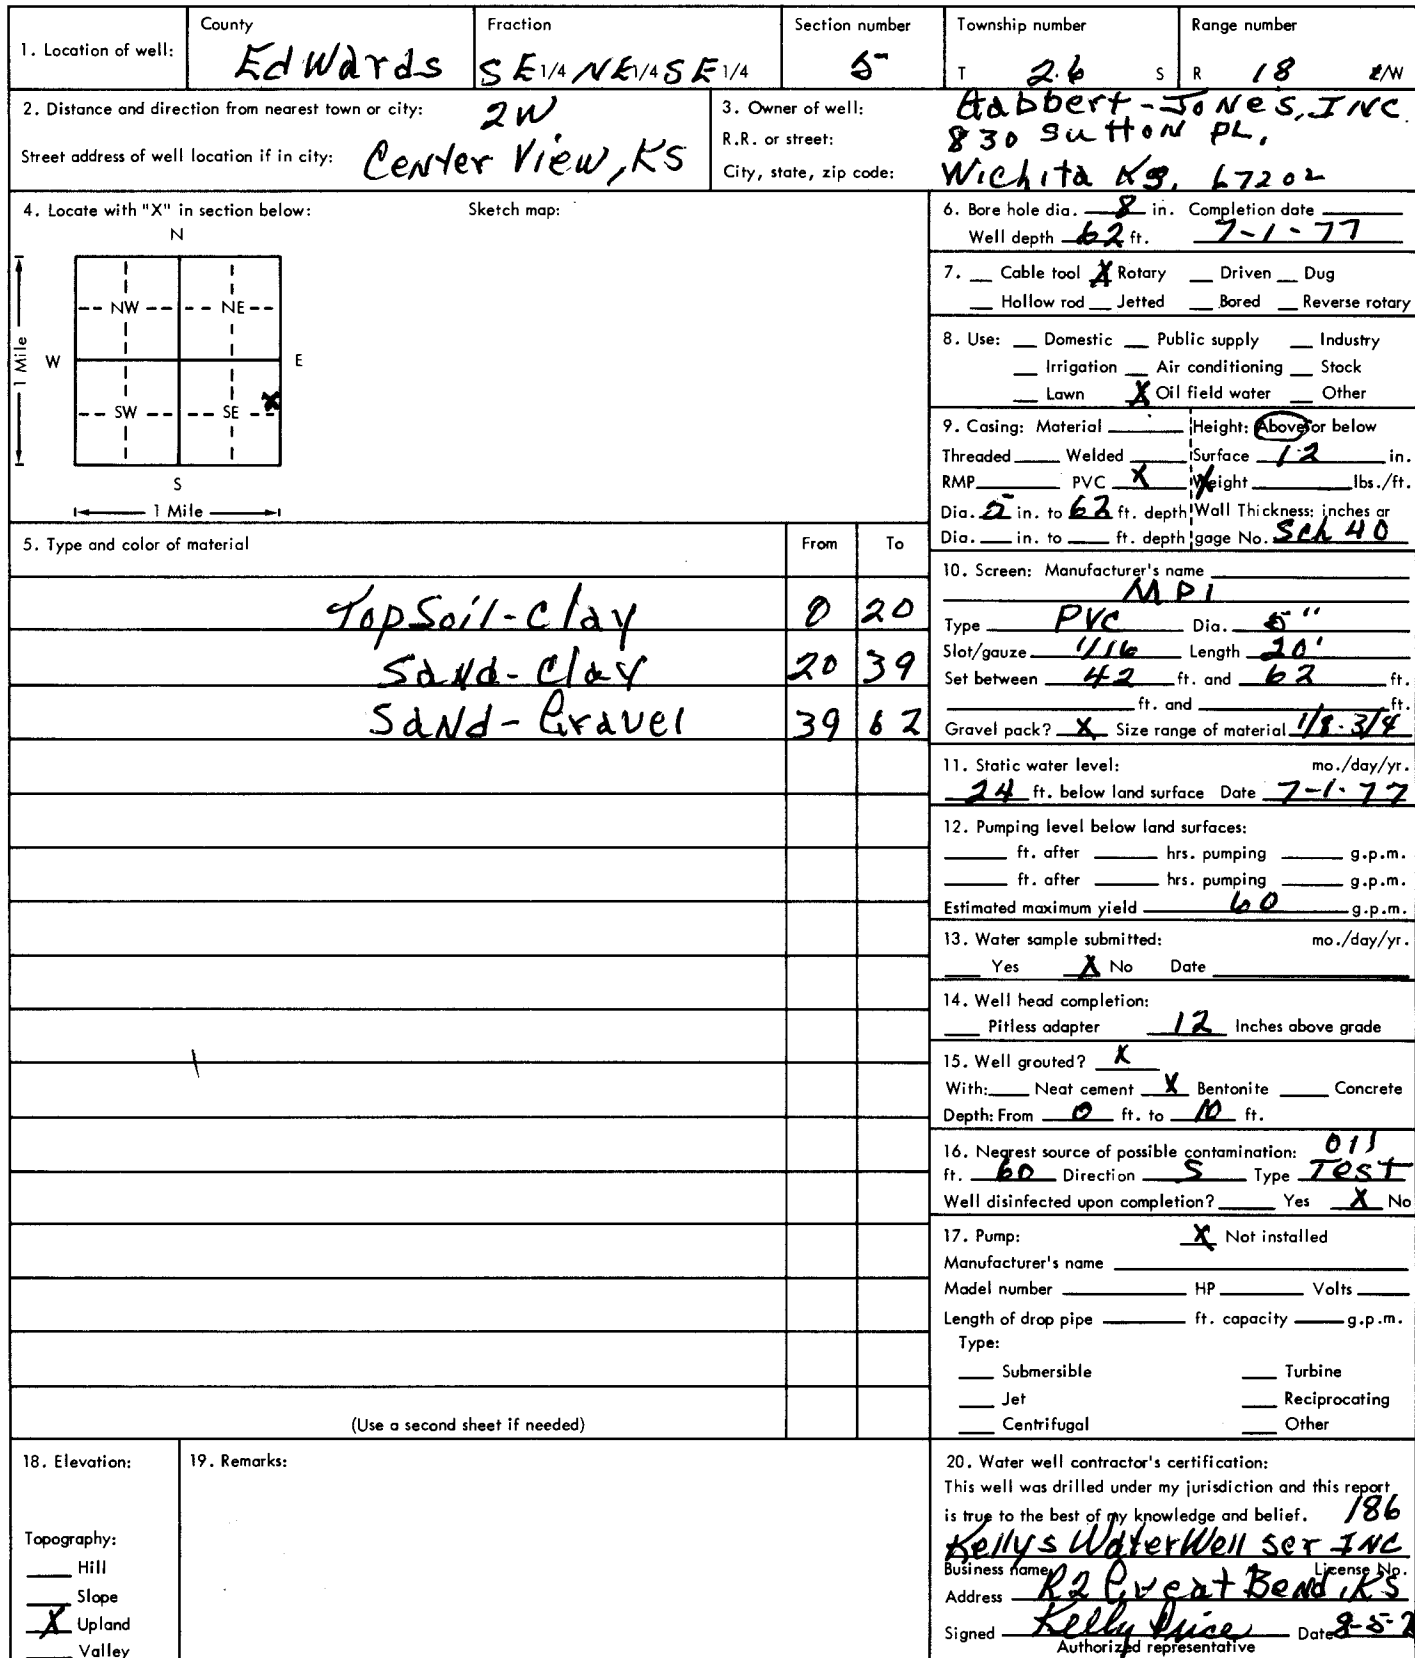 1. Location of well: County Edwards Fraction SE 1/4 NE 1/4 SE 1/4 Section number 5 Township number T 26 S Range number R 18 E/W
2. Distance and direction from nearest town or city: 2W
Street address of well location if in city: Center View, KS
3. Owner of well: Gabbert-Jones, INC.
R.R. or street: 830 Sutton PL.
City, state, zip code: Wichita KS. 67202
4. Locate with "X" in section below: Sketch map:
N
NW NE
W E
1 Mile
X
SW SE
S
1 Mile
5. Type and color of material From To
Top Soil-Clay 0 20
Sand-Clay 20 39
Sand-Gravel 39 62
(Use a second sheet if needed)
6. Bore hole dia. 8 in. Completion date
Well depth 62 ft. 7-1-77
7. __ Cable tool X Rotary __ Driven __ Dug
__ Hollow rod __ Jetted __ Bored __ Reverse rotary
8. Use: __ Domestic __ Public supply __ Industry
__ Irrigation __ Air conditioning __ Stock
__ Lawn X Oil field water __ Other
9. Casing: Material ____ Height: Above or below
Threaded ____ Welded ____ Surface 12 in.
RMP ____ PVC X Weight ____ lbs./ft.
Dia. 5 in. to 62 ft. depth Wall Thickness: inches or
Dia. __ in. to __ ft. depth gage No. Sch 40
10. Screen: Manufacturer's name
MPI
Type PVC Dia. 5"
Slot/gauze 1/16 Length 20'
Set between 42 ft. and 62 ft.
____ ft. and ____ ft.
Gravel pack? X Size range of material 1/8-3/4
11. Static water level: mo./day/yr.
24 ft. below land surface Date 7-1-77
12. Pumping level below land surfaces:
____ ft. after ____ hrs. pumping ____ g.p.m.
____ ft. after ____ hrs. pumping ____ g.p.m.
Estimated maximum yield 60 g.p.m.
13. Water sample submitted: mo./day/yr.
__ Yes X No Date ____
14. Well head completion:
__ Pitless adapter 12 Inches above grade
15. Well grouted? X
With: __ Neat cement X Bentonite __ Concrete
Depth: From 0 ft. to 10 ft.
16. Nearest source of possible contamination: Oil
ft. 60 Direction S Type Test
Well disinfected upon completion? __ Yes X No
17. Pump: X Not installed
Manufacturer's name ____
Model number ____ HP ____ Volts ____
Length of drop pipe ____ ft. capacity ____ g.p.m.
Type:
__ Submersible __ Turbine
__ Jet __ Reciprocating
__ Centrifugal __ Other
18. Elevation:
Topography:
__ Hill
__ Slope
X Upland
__ Valley
19. Remarks:
20. Water well contractor's certification:
This well was drilled under my jurisdiction and this report
is true to the best of my knowledge and belief. 186
Kellys Water Well Ser INC
Business name License No.
Address R2 Great Bend, KS
Signed Kelly Price Date 8-5-7
Authorized representative